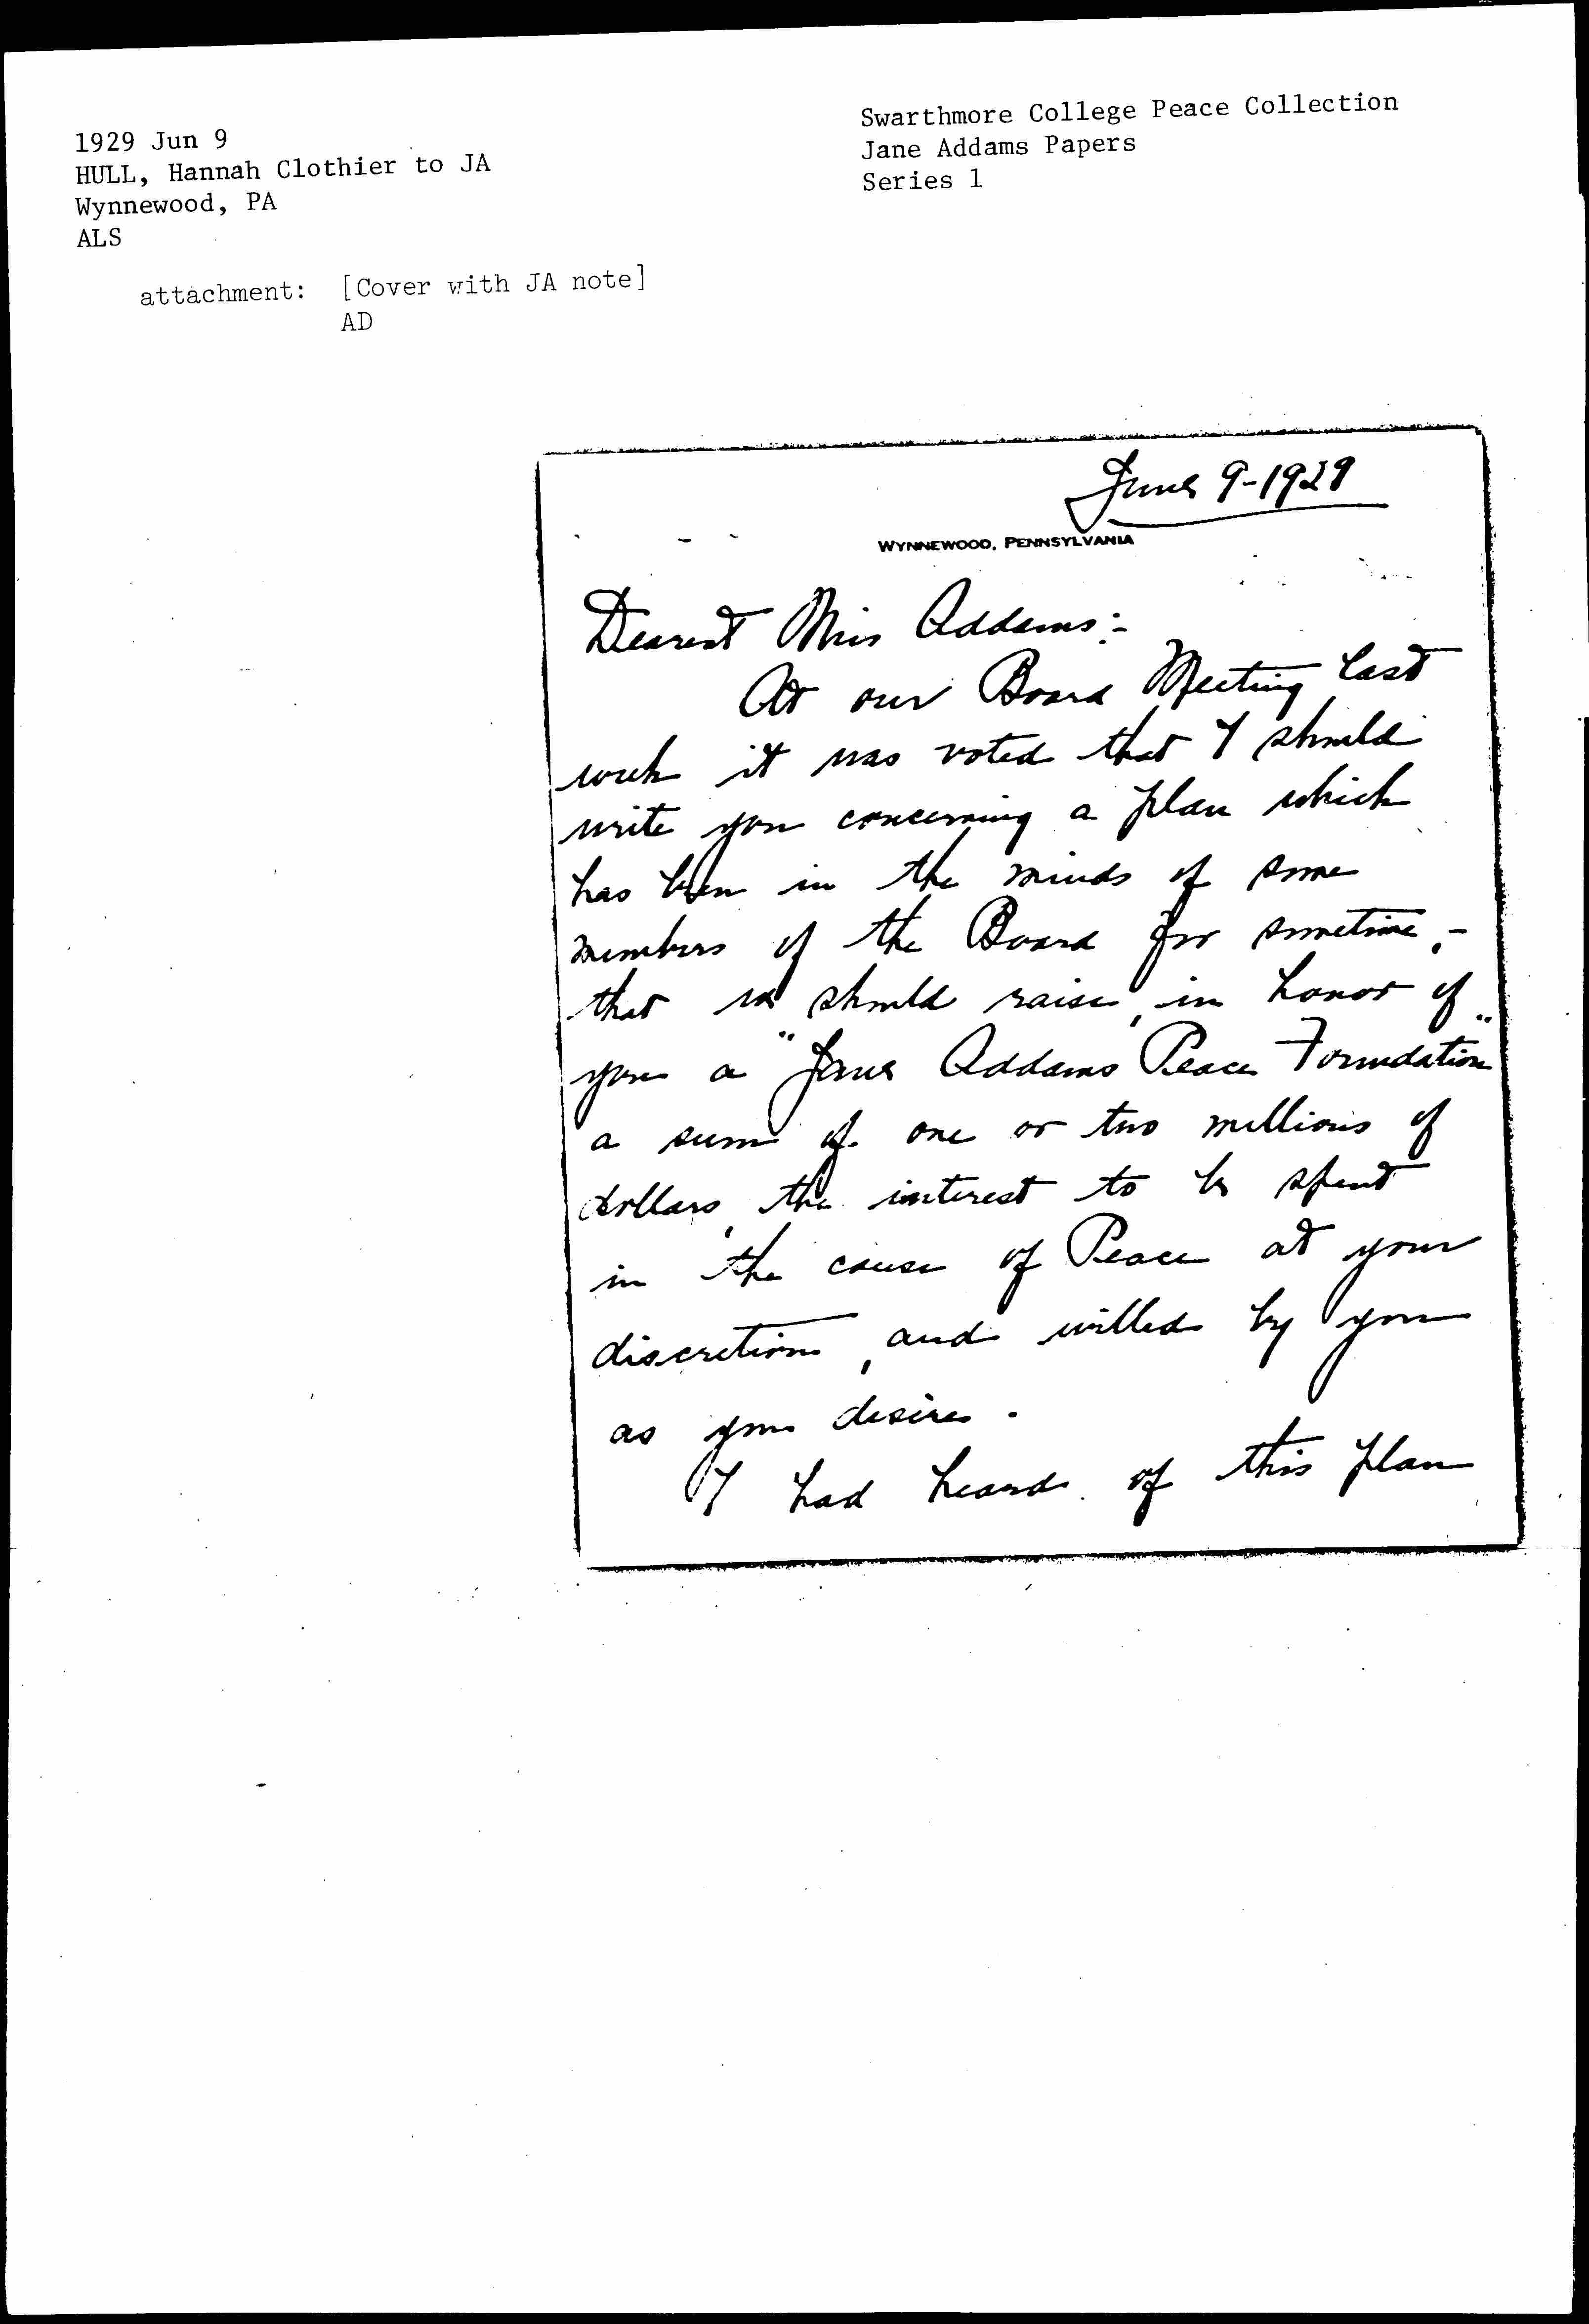 1929 Jun 9
HULL, Hannah Clothier to JA
Wynnewood, PA
ALS
attachment: [Cover with JA note]
AD
Swarthmore College Peace Collection
Jane Addams Papers
Series 1
June 9-1929
WYNNEWOOD, PENNSYLVANIA
Dearest Miss Addams:-
At our Board Meeting last
week it was voted that I should
write you concerning a plan which
has been in the minds of some
members of the Board for sometime,-
that we should raise, in honor of
you a "Jane Addams Peace Foundation"
a sum of one or two millions of
dollars, the interest to be spent
in the cause of Peace at your
discretion, and willed by you
as you desire.
I had heard of this plan